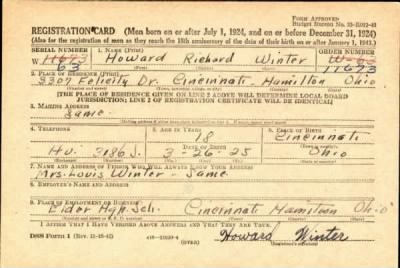 FORM APPROVED
REGISTRATION CARD (Men born on or after July 1, 1924, and on or before December 31, 1924)
(Also for the registration of men as they reach the 18th anniversary of the date of their birth on or after January 1, 1943.)
SERIAL NUMBER 1. NAME (Print) ORDER NUMBER
W- 11673 Howard Richard Winter W-63
63 11673
2. PLACE OF RESIDENCE (Print)
3307 Felicity Dr. Cincinnati, Hamilton Ohio
[THE PLACE OF RESIDENCE GIVEN ON LINE 2 ABOVE WILL DETERMINE LOCAL BOARD
JURISDICTION; LINE 2 OF REGISTRATION CERTIFICATE WILL BE IDENTICAL]
3. MAILING ADDRESS
Same
4. TELEPHONE 5. AGE IN YEARS 6. PLACE OF BIRTH
18 Cincinnati
DATE OF BIRTH
Hu. 3186 J. 3-26-25 Ohio
7. NAME AND ADDRESS OF PERSON WHO WILL ALWAYS KNOW YOUR ADDRESS
Mrs. Louis Winter - Same
8. EMPLOYER'S NAME AND ADDRESS
9. PLACE OF EMPLOYMENT OR BUSINESS
Elder High Sch. Cincinnati Hamilton Ohio
I AFFIRM THAT I HAVE VERIFIED ABOVE ANSWERS AND THAT THEY ARE TRUE.
DSS Form 1 (OVER) Howard Winter
(Registrant's signature)